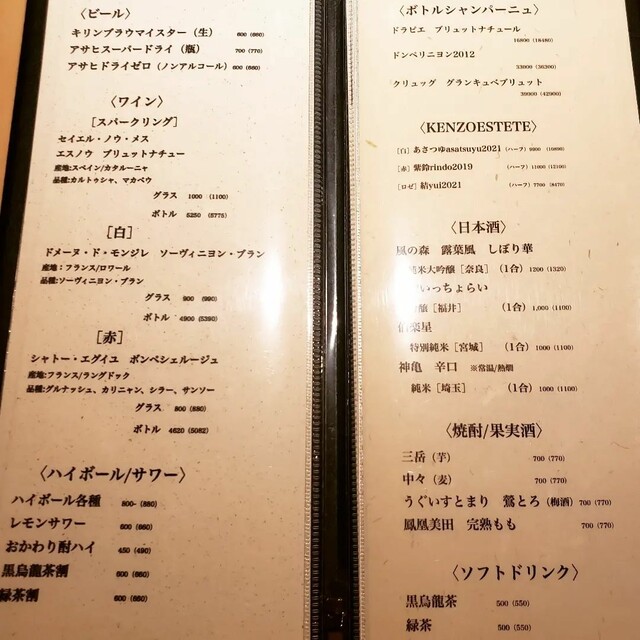 〈ビール〉
キリンブラウマイスター（生） 600 (660)
アサヒスーパードライ（瓶） 700 (770)
アサヒドライゼロ（ノンアルコール） 600 (660)
〈ワイン〉
［スパークリング］
セイエル・ノウ・メス
エスノウ ブリュットナチュー
産地:スペイン/カタルーニャ
品種:カルトゥシャ、マカベウ
グラス 1000 (1100)
ボトル 5250 (5775)
［白］
ドメーヌ・ド・モンジレ ソーヴィニヨン・ブラン
産地：フランス/ロワール
品種:ソーヴィニヨン・ブラン
グラス 900 (990)
ボトル 4900 (5390)
［赤］
シャトー・エグイユ ポンペシェルージュ
産地:フランス/ラングドック
品種:グルナッシュ、カリニャン、シラー、サンソー
グラス 800 (880)
ボトル 4620 (5082)
〈ハイボール/サワー〉
ハイボール各種 800- (880)
レモンサワー 600 (660)
おかわり酎ハイ 450 (490)
黒烏龍茶割 600 (660)
緑茶割 600 (660)
〈ボトルシャンパーニュ〉
ドラピエ ブリュットナチュール
16800 (18480)
ドンペリニヨン2012
33000 (36300)
クリュッグ グランキュベブリュット
39000 (42900)
〈KENZOESTETE〉
［白］あさつゆasatsuyu2021 （ハーフ） 9900 (10890)
［赤］紫鈴rindo2019 （ハーフ） 11000 (12100)
［ロゼ］結yui2021 （ハーフ） 7700 (8470)
〈日本酒〉
風の森 露葉風 しぼり華
純米大吟醸［奈良］ （1合） 1200 (1320)
いっちょらい
吟醸［福井］ （1合） 1,000 (1100)
伯楽星
特別純米［宮城］ （1合） 1000 (1100)
神亀 辛口 ※常温/熱燗
純米［埼玉］ （1合） 1000 (1100)
〈焼酎/果実酒〉
三岳（芋） 700 (770)
中々（麦） 700 (770)
うぐいすとまり 鶯とろ（梅酒） 700 (770)
鳳凰美田 完熟もも 700 (770)
〈ソフトドリンク〉
黒烏龍茶 500 (550)
緑茶 500 (550)